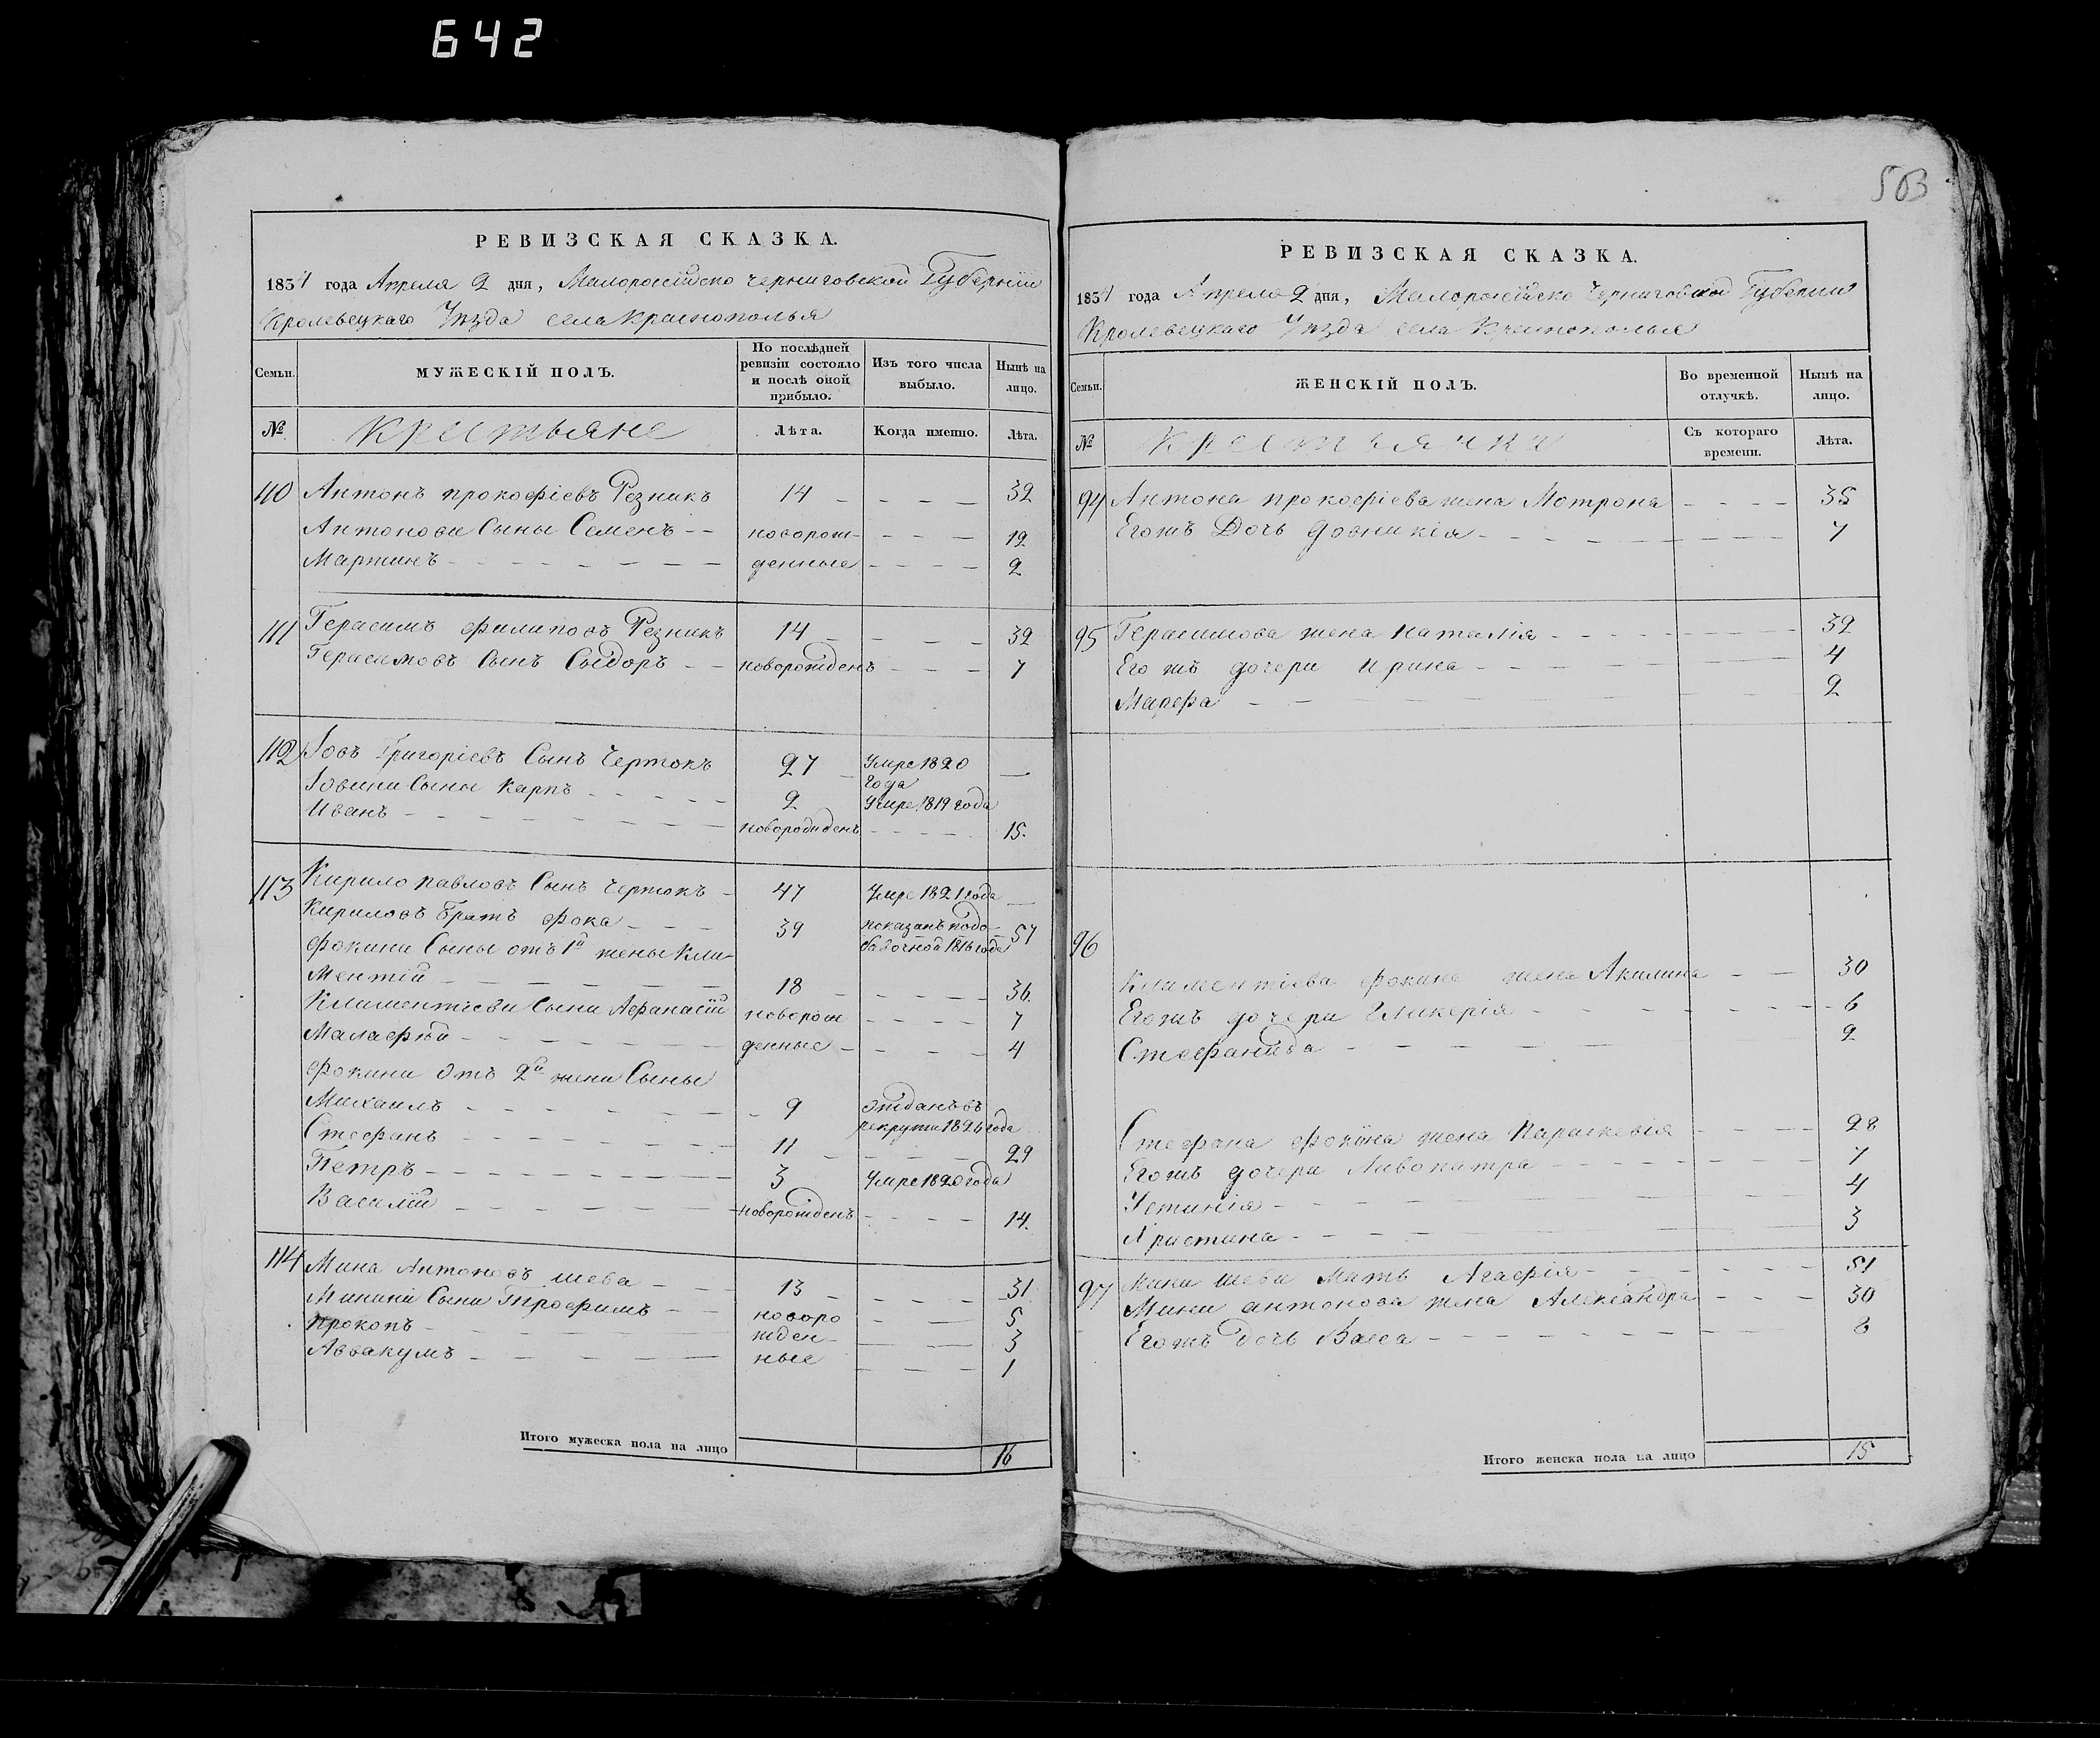 642
503
РЕВИЗСКАЯ СКАЗКА.
1834 года Апреля 2 дня, Малороссийско Черниговской Губернии
Кролевецкаго Уѣзда села Краснополья
Семьи.
МУЖЕСКІЙ ПОЛЪ.
По послѣдней ревизіи состояло и послѣ оной прибыло.
Изъ того числа выбыло.
Нынѣ на лицо.
№
крестьяне
Лѣта.
Когда именно.
Лѣта.
110 Антонъ прокофіевъ Резникъ 14 32
Антонови Сыны Семенъ новорож- 12
Мартинъ денные 2
111 Герасимъ филиповъ Резникъ 14 32
Герасимовъ Сынъ Сыдоръ новорожденъ 7
112 Іовъ Григоріевъ Сынъ Чертокъ 27 Умре 1820 года
Іовини Сыны Карпъ 2 Умре 1819 года
Иванъ новорожденъ 15.
113 Кирило павловъ Сынъ Чертокъ 47 Умре 1821 года
Кириловъ братъ фока 39 показанъ подо-бавочной 1816 года 57
фокини Сыны отъ 1й жены Кли-
ментій 18 36.
Климентіеви Сыни Афанасій новорож 7
Малафѣй денные 4
фокини Отъ 2й жени Сыны
Михаилъ 9 Отданъ въ рекруты 1826 года
Стефанъ 11 29
Петръ 3 Умре 1820 года
Василій новорожденъ 14.
114 Мина Антоновъ шева 13 31
Минини Сыни Трофимъ новоро 5
Прокопъ жден- 3
Аввакумъ ные 1
Итого мужеска пола на лицо 16
РЕВИЗСКАЯ СКАЗКА.
1834 года Апреля 2 дня, Малороссійско Черниговской Губернии
Кролевецкаго Уѣзда села Краснополья
Семьи.
ЖЕНСКІЙ ПОЛЪ.
Во временной отлучкѣ.
Нынѣ на лицо.
№
крестьянки
Съ котораго времени.
Лѣта.
94 Антона прокофіева жена Мотрона 35
Егожъ Дочь Довникія 7
95 Герасимова жена Наталія 32
Его жъ дочери Ирина 4
Марфа 2
96
Климентіева фокина жена Акилина 30
Егожъ дочери Гликерія 6
Стефанида 2
Стефана фокина жена Параскевія 28
Егожъ дочери Ливокатра 7
Устинія 4
Христина 3
97 Мини шеви мать Агафія 51
Мини антонова жена Александра 30
Егожъ дочь Васса 8
Итого женска пола на лицо 15